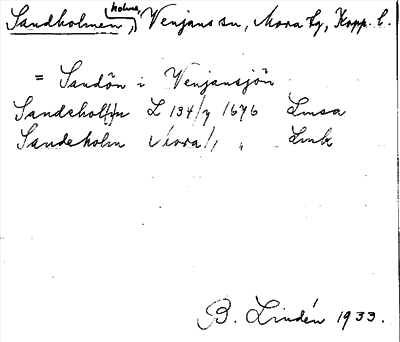 Sandholmen, holme, Venjans sn, Mora tg, Kopp. l.
= Sandön i Venjansjön
Sandehol L 134/7 1676 Lmsa
Sandeholm Mora 1, " Lmk
B. Lindén 1933.